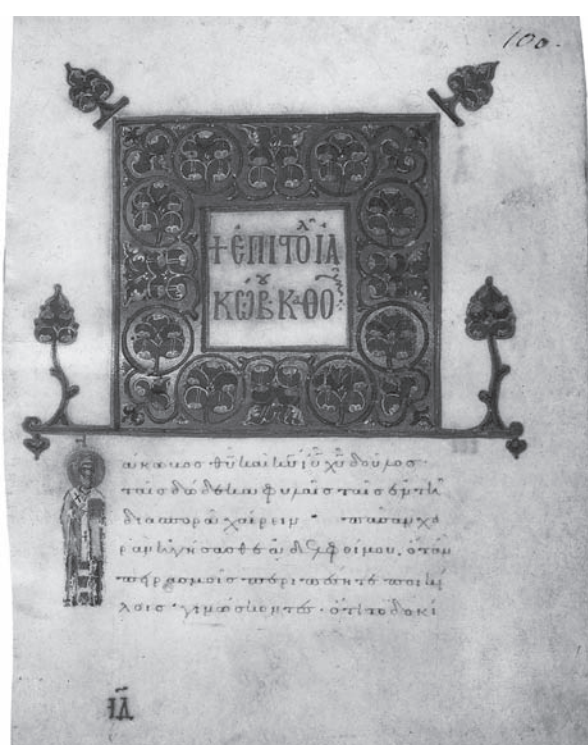 100.
+ ἘΠΙΤΟΛ ἸΑ
ΚΏΒ· ΚΑΘΟ
άκωβος θῦ καὶ κῦ ἰῦ χῦ δοῦλος·
ταῖς δώδεκα φυλαῖς ταῖς ἐν τῆ
διασπορᾶ χαίρειν· πᾶσαν χα
ρὰν ἡγήσασθε ἀδελφοί μου, ὅταν
πειρασμοῖς περιπέσητε ποικί
λοις· γινώσκοντες· ὅτι τὸ δοκί
ΙΔ